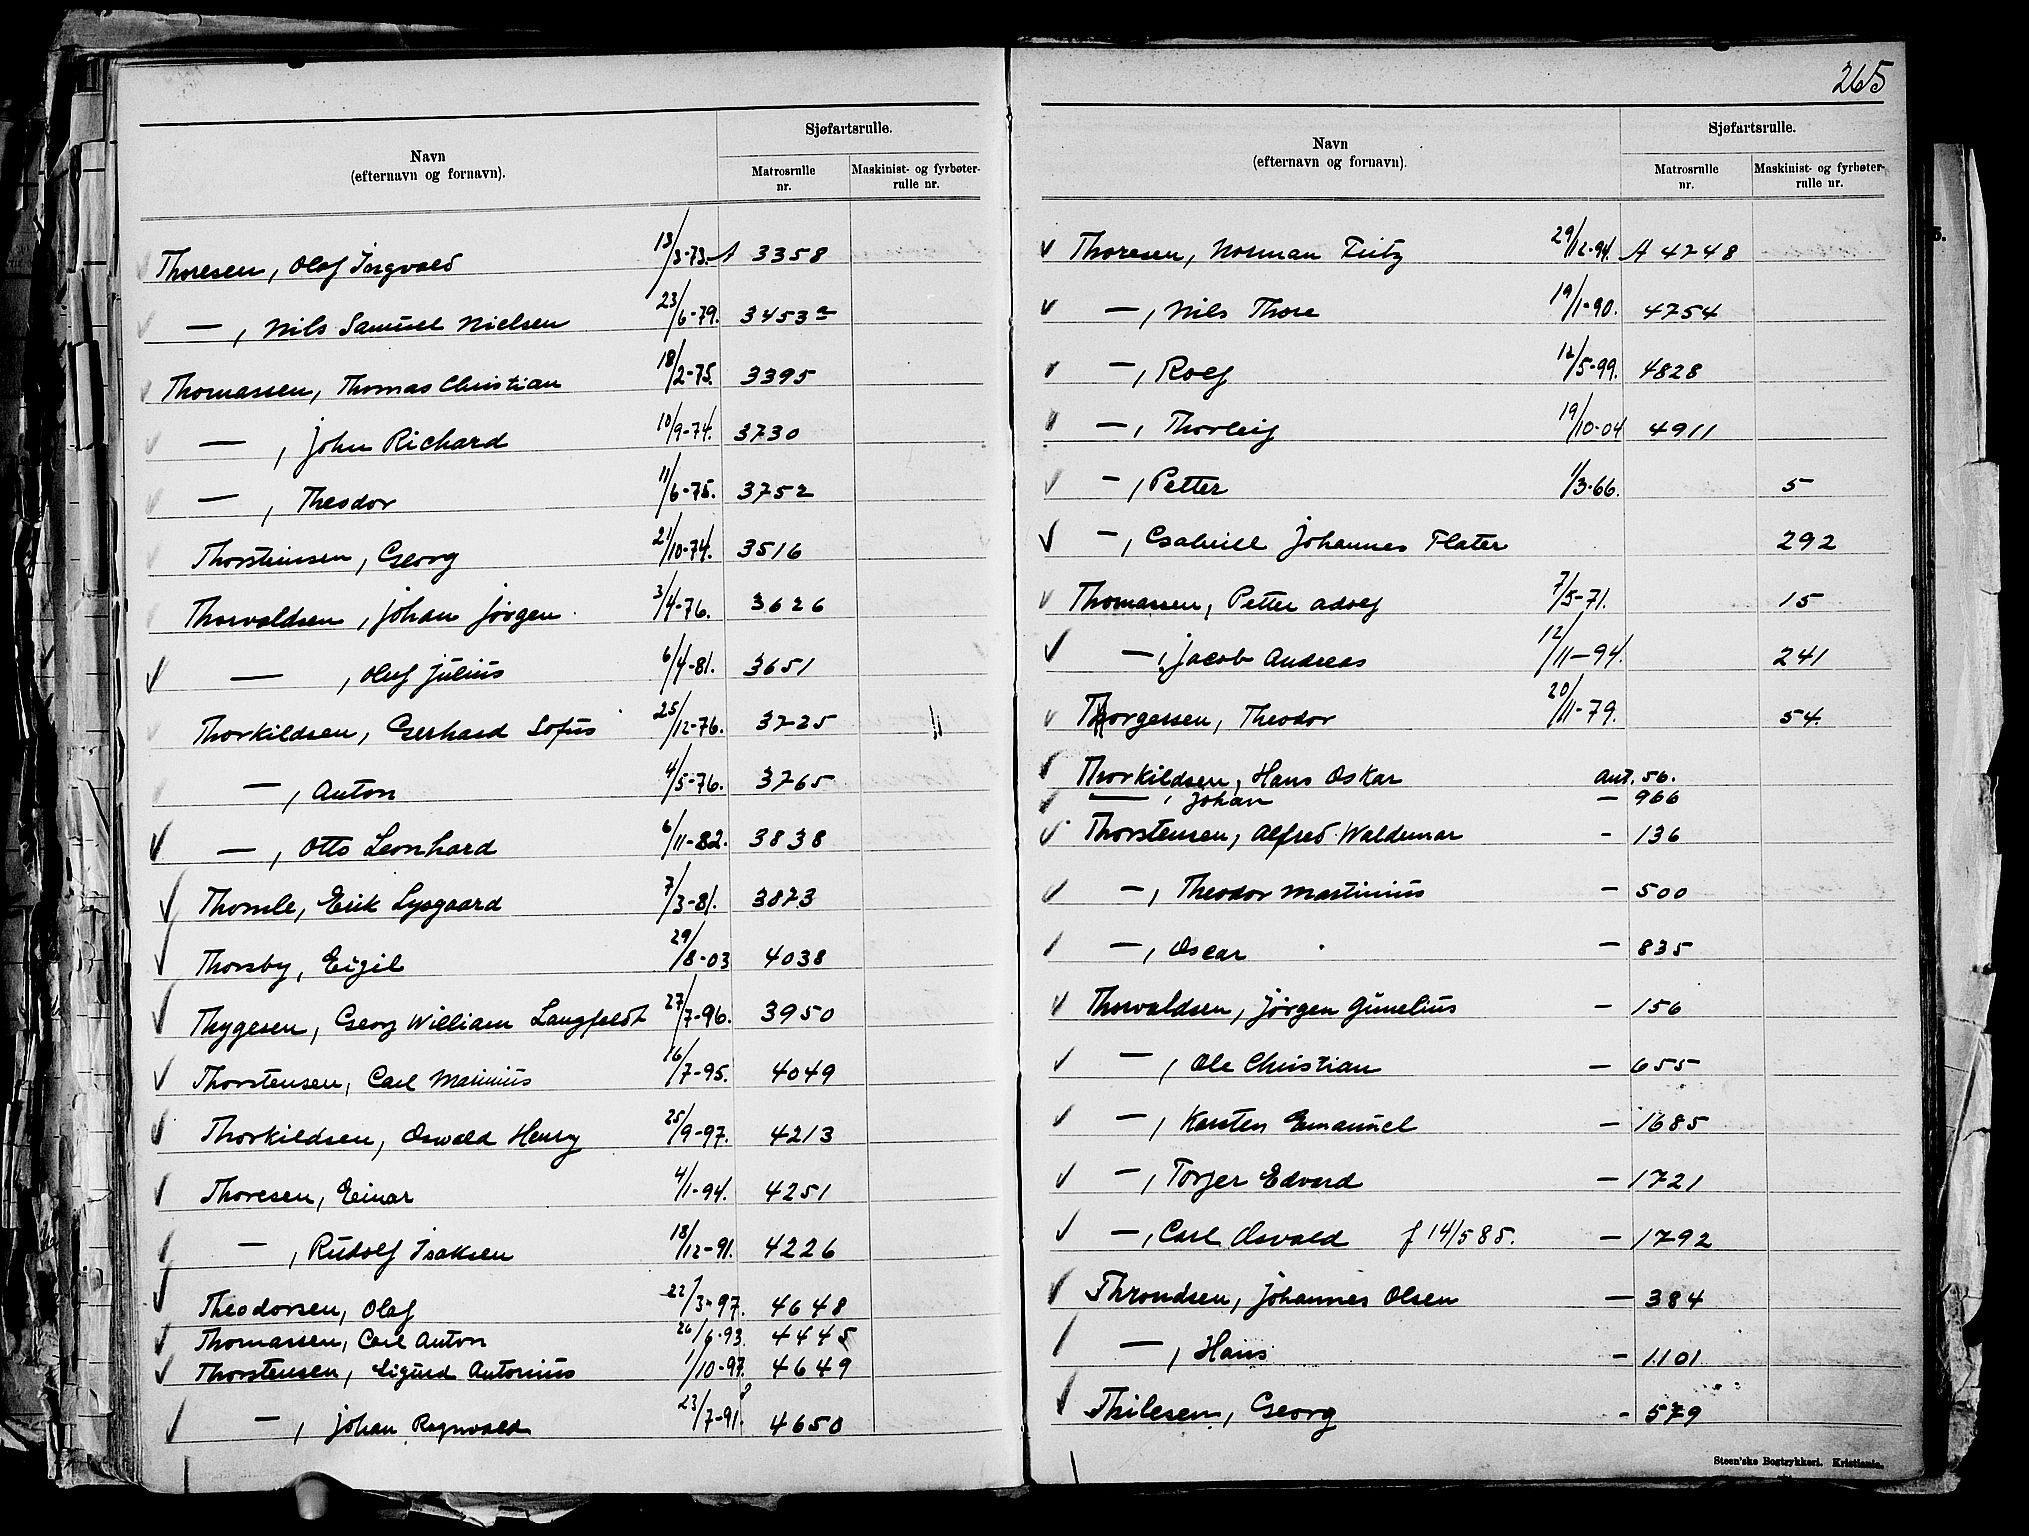 Navn
(efternavn og fornavn).
Sjøfartsrulle.
Matrosrulle nr.
Maskinist- og fyrbøter-rulle nr.
Thoresen, Olaf Ingvald 13/3-73. A 3358
—, Nils Samuel Nielsen 23/6-79. 3453 a
Thomassen, Thomas Christian 18/2-75. 3395
—, John Richard 10/9-74. 3730
—, Theodor 11/6-75. 3752
Thorsteinsen, Georg 21/10-74. 3516
Thorvaldsen, Johan Jørgen 3/4-76. 3626
—, Oluf Julius 6/4-81. 3651
Thorkildsen, Gerhard Sofus 25/12-76. 3725
—, Anton 4/5-76. 3765
—, Otto Leonhard 6/11-82. 3838
Thomle, Erik Lysgaard 7/3-81. 3873
Thorsby, Eigil 29/8-03 4038
Thygesen, Georg William Langfeldt 27/7-96. 3950
Thorstensen, Carl Marinius 16/7-95. 4049
Thorkildsen, Oswald Henry 25/9-97. 4213
Thoresen, Einar 4/1-94. 4251
—, Rudolf Isaksen 18/12-91. 4226
Theodorsen, Olaf 22/3-97. 4648
Thomassen, Carl Anton 26/6-93. 4445
Thorstensen, Sigurd Antonius 1/10-97. 4649
—, Johan Ragnvald 23/7-91. 4650
265
Navn
(efternavn og fornavn).
Sjøfartsrulle.
Matrosrulle nr.
Maskinist- og fyrbøter-rulle nr.
Thoresen, Norman Fritz 29/12-94. A 4748
—, Nils Thore 19/1-90. 4754
—, Rolf 12/5-99. 4828
—, Thorleif 19/10-04 4911
—, Petter 1/3-66. 5
—, Gabriell Johannes Flater 292
Thomassen, Petter Adolf 7/5-71. 15
—, Jacob Andreas 12/11-94. 241
Thorgessen, Theodor 20/11-79. 54
Thorkildsen, Hans Oskar Ant. 56.
—, Johan — 966
Thorstensen, Alfred Waldemar - 136
—, Theodor Martinius — 500
—, Oscar — 835
Thorvaldsen, Jørgen Gunelius — 156
—, Ole Christian — 655
—, Karsten Emanuel — 1685
—, Torjer Edvard — 1721
—, Carl Osvald f 14/5 85. — 1792
Throndsen, Johannes Olsen — 384
—, Hans - 1101
Thilesen, Georg - 579
Steen'ske Bogtrykkeri. Kristiania.